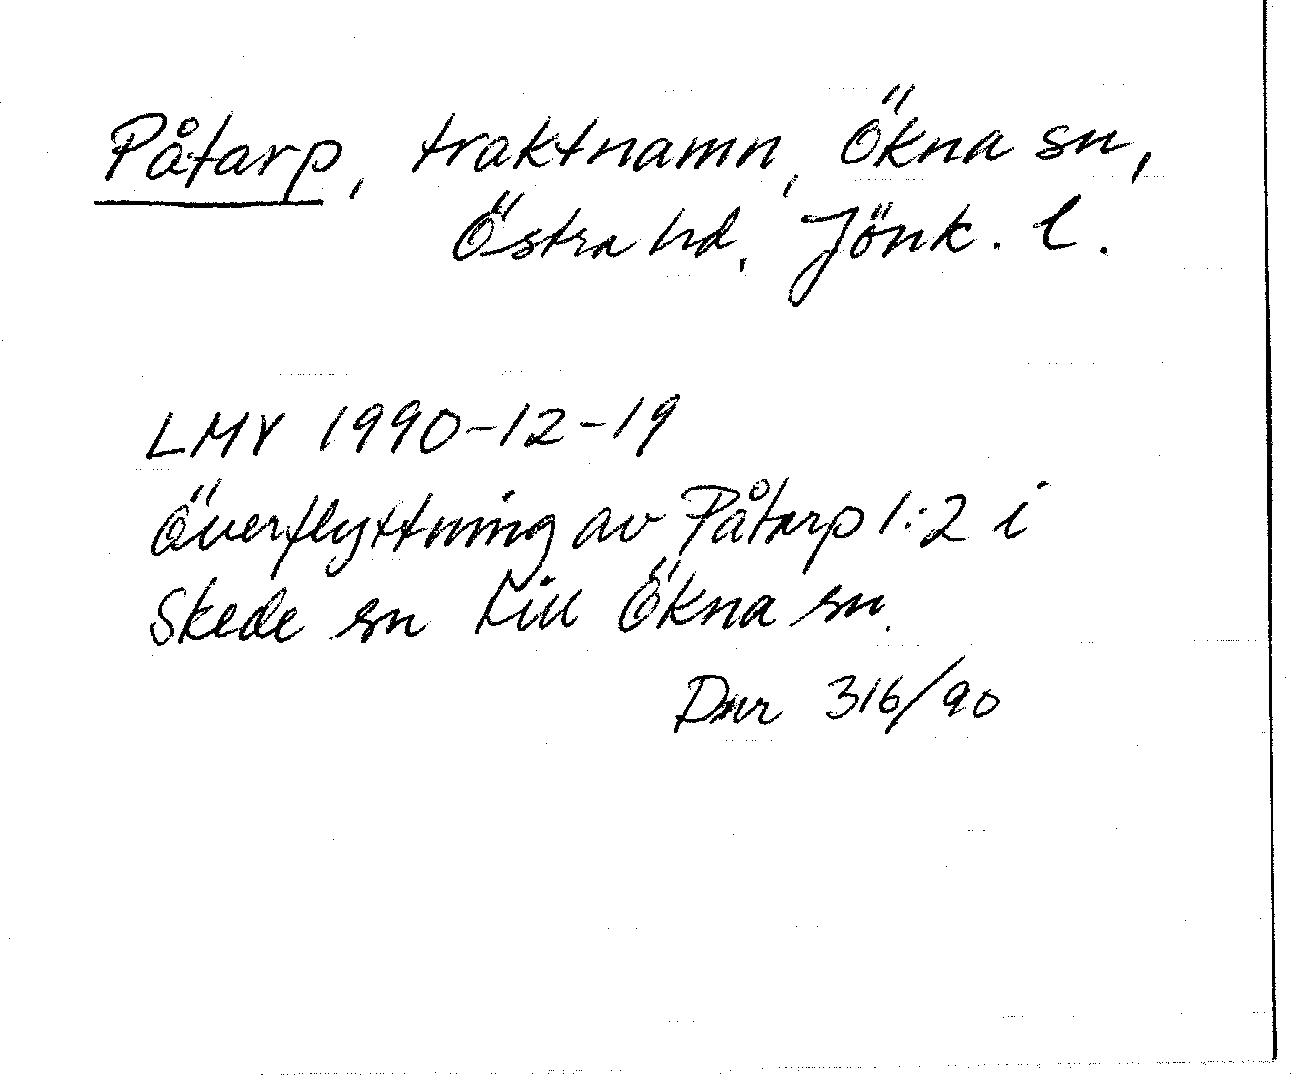 Påtarp, traktnamn, Ökna sn,
Östra hd, Jönk. l.
LMV 1990-12-19
Överflyttning av Påtarp 1:2 i
Skede sn till Ökna sn.
Dnr 316/90